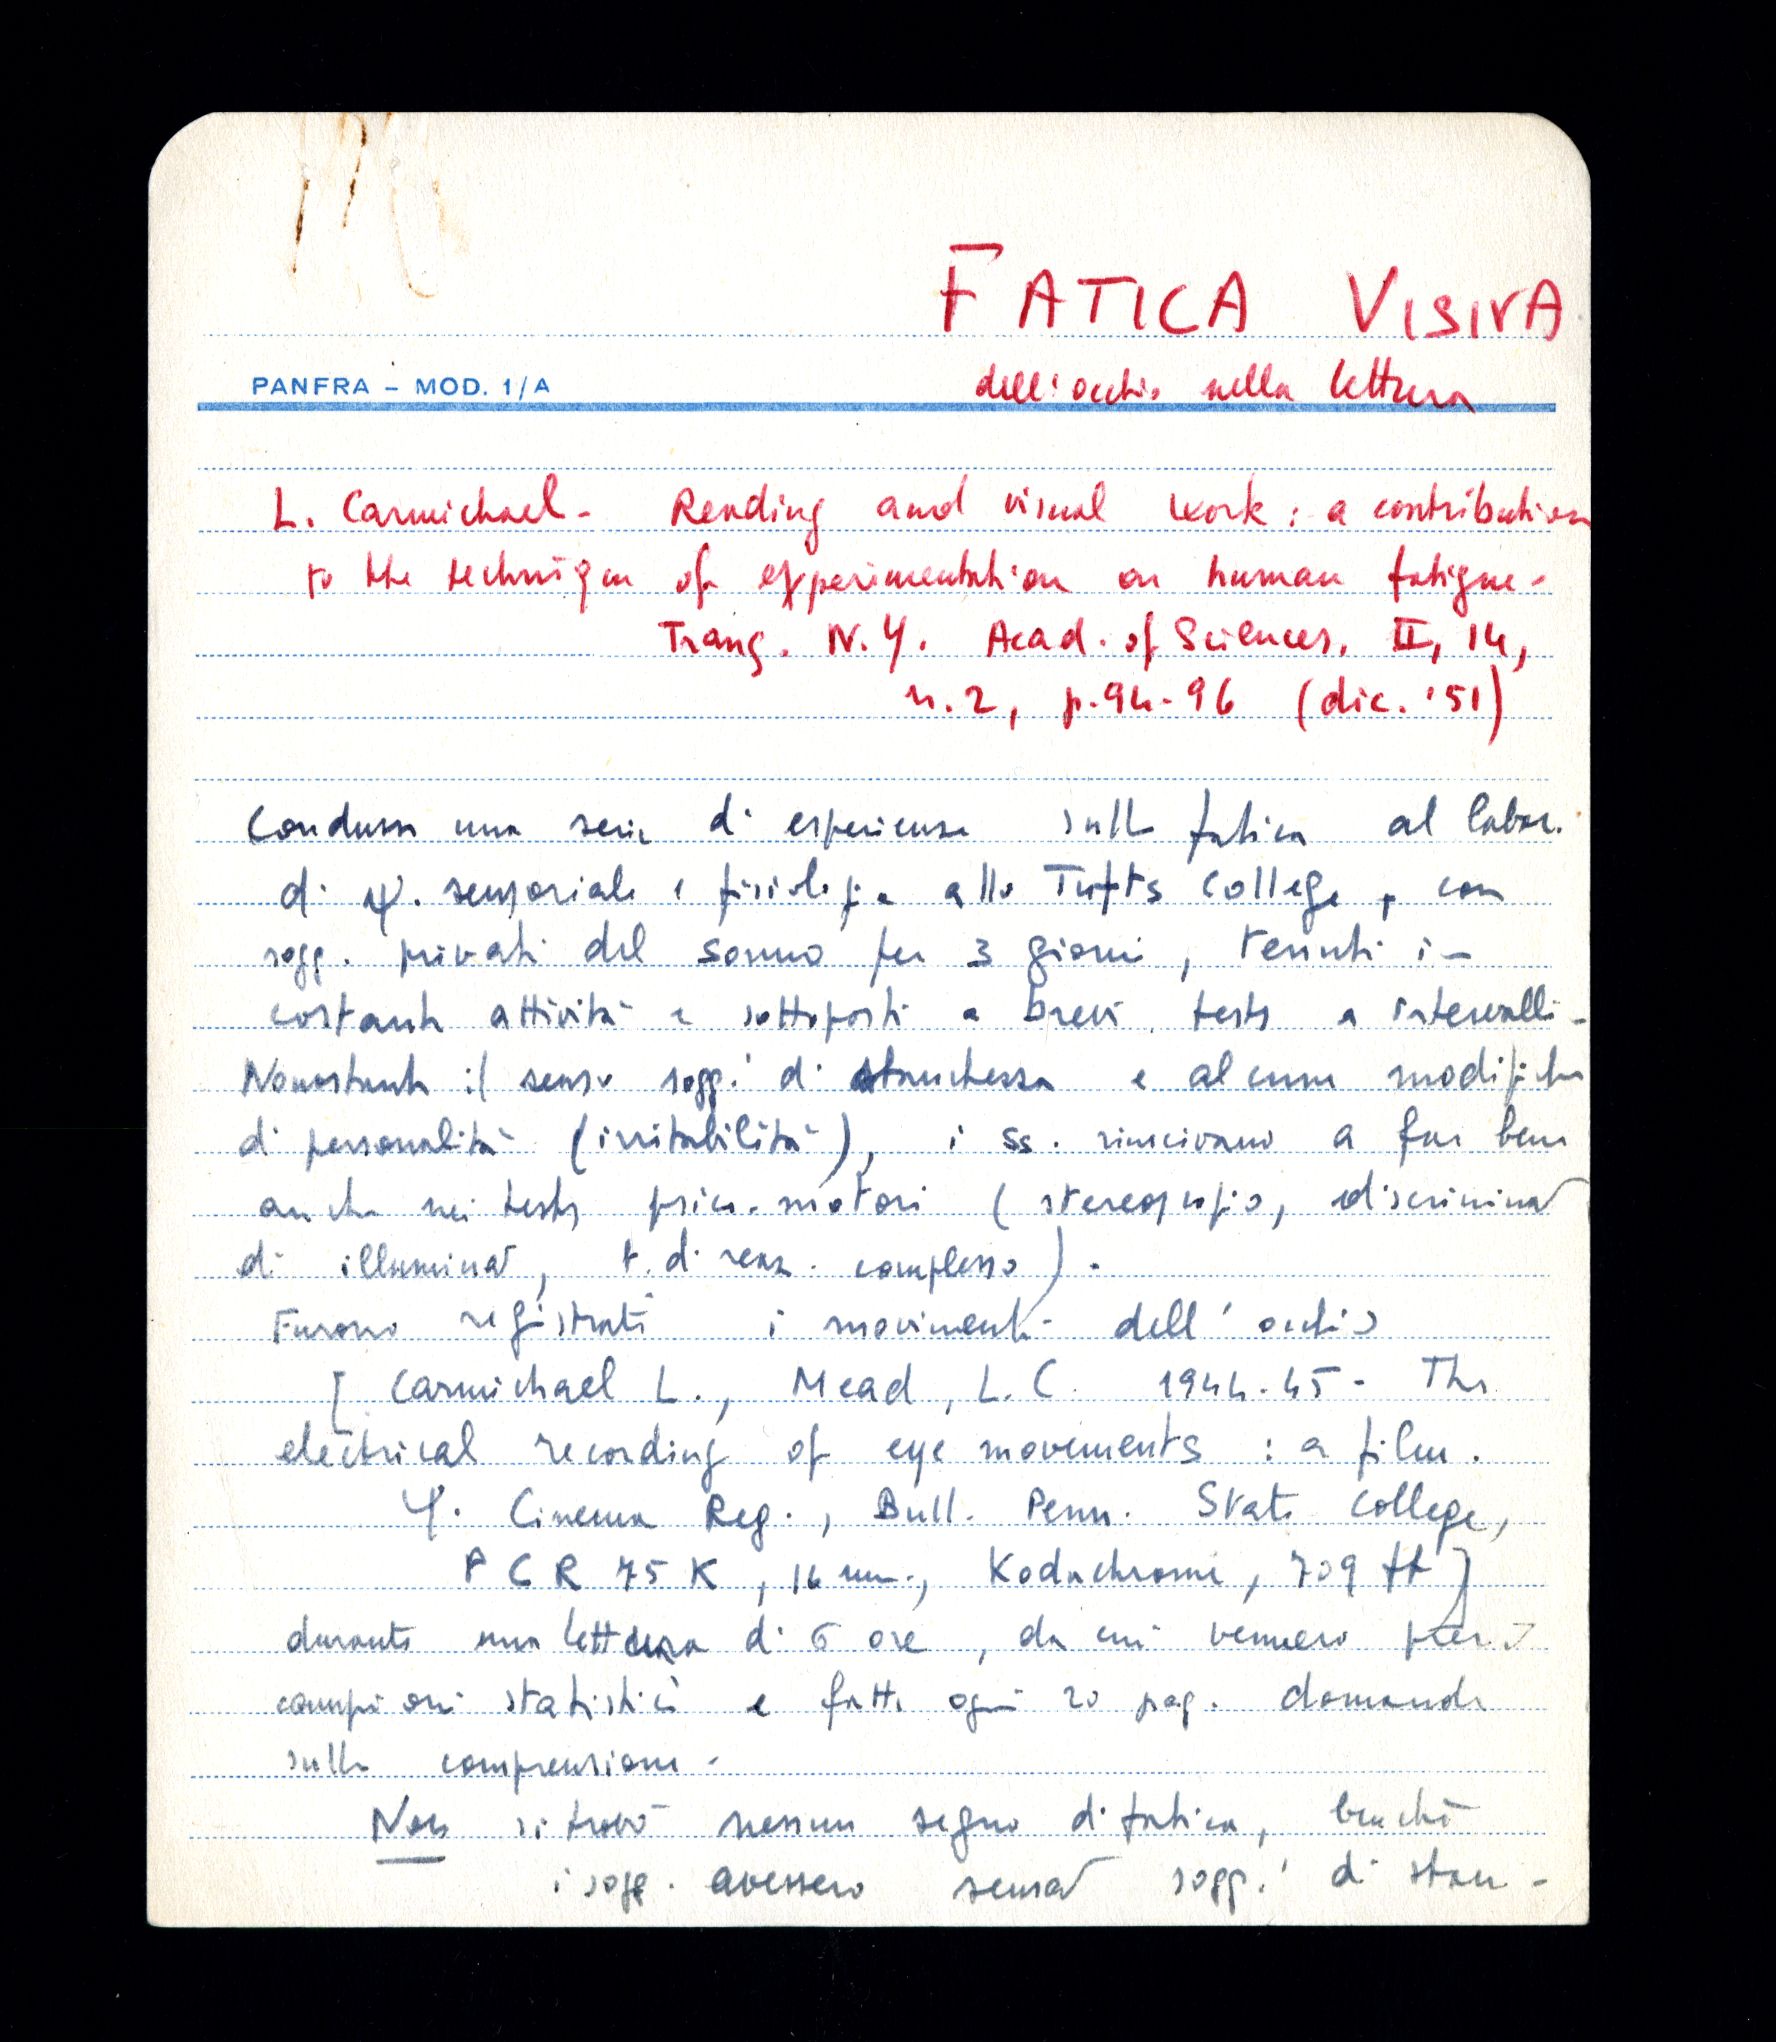 FATICA VISIVA
PANFRA – MOD. 1/A
dell'occhio nella lettura
L. Carmichael - Reading and visual work : a contribution
to the technique of experimentation on human fatigue -
Trans. N.Y. Acad. of Sciences, II, 14,
n. 2, p. 94-96 (dic. '51)
Condusse una serie di esperienze sulla fatica al labor.
di ψ. sensoriale e fisiologia allo Tufts College, con
sogg. privati del sonno per 3 giorni, tenuti in
costante attività e sottoposti a brevi tests a intervalli -
Nonostante il senso sogg.' di stanchezza e alcune modifiche
di personalità (irritabilità), i ss. riuscivano a far bene
anche nei tests psico-motori (stereoscopio, discriminaz
di illuminaz, t. di reaz. complesso).
Furono registrati i movimenti dell'occhio
[ Carmichael L., Mead, L.C. 1944-45 - The
electrical recording of eye movements : a film.
Ψ. Cinema Reg., Bull. Penn. State College,
P C R 75 K, 16 mm., Kodachrome, 709 ft ]
durante una lettura di 6 ore, da cui vennero presi
campioni statistici e fatte ogni 20 pag. domande
sulla comprensione -
Non si trovò nessun segno di fatica, benchè
i sogg. avessero sensaz sogg.' di stan-